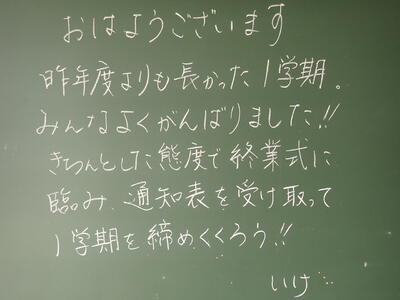 おはようございます
昨年度よりも長かった1学期。
みんなよくがんばりました!!
きちんとした態度で終業式に
臨み、通知表を受け取って
1学期を締めくくろう!!
いけ